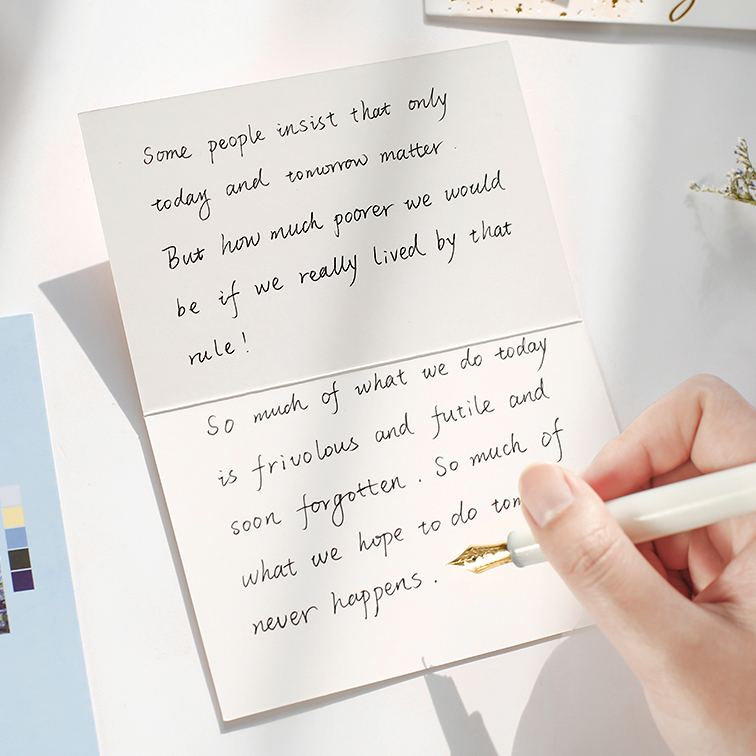 Some people insist that only
today and tomorrow matter.
But how much poorer we would
be if we really lived by that
rule!
So much of what we do today
is frivolous and futile and
soon forgotten. So much of
what we hope to do tom
never happens.